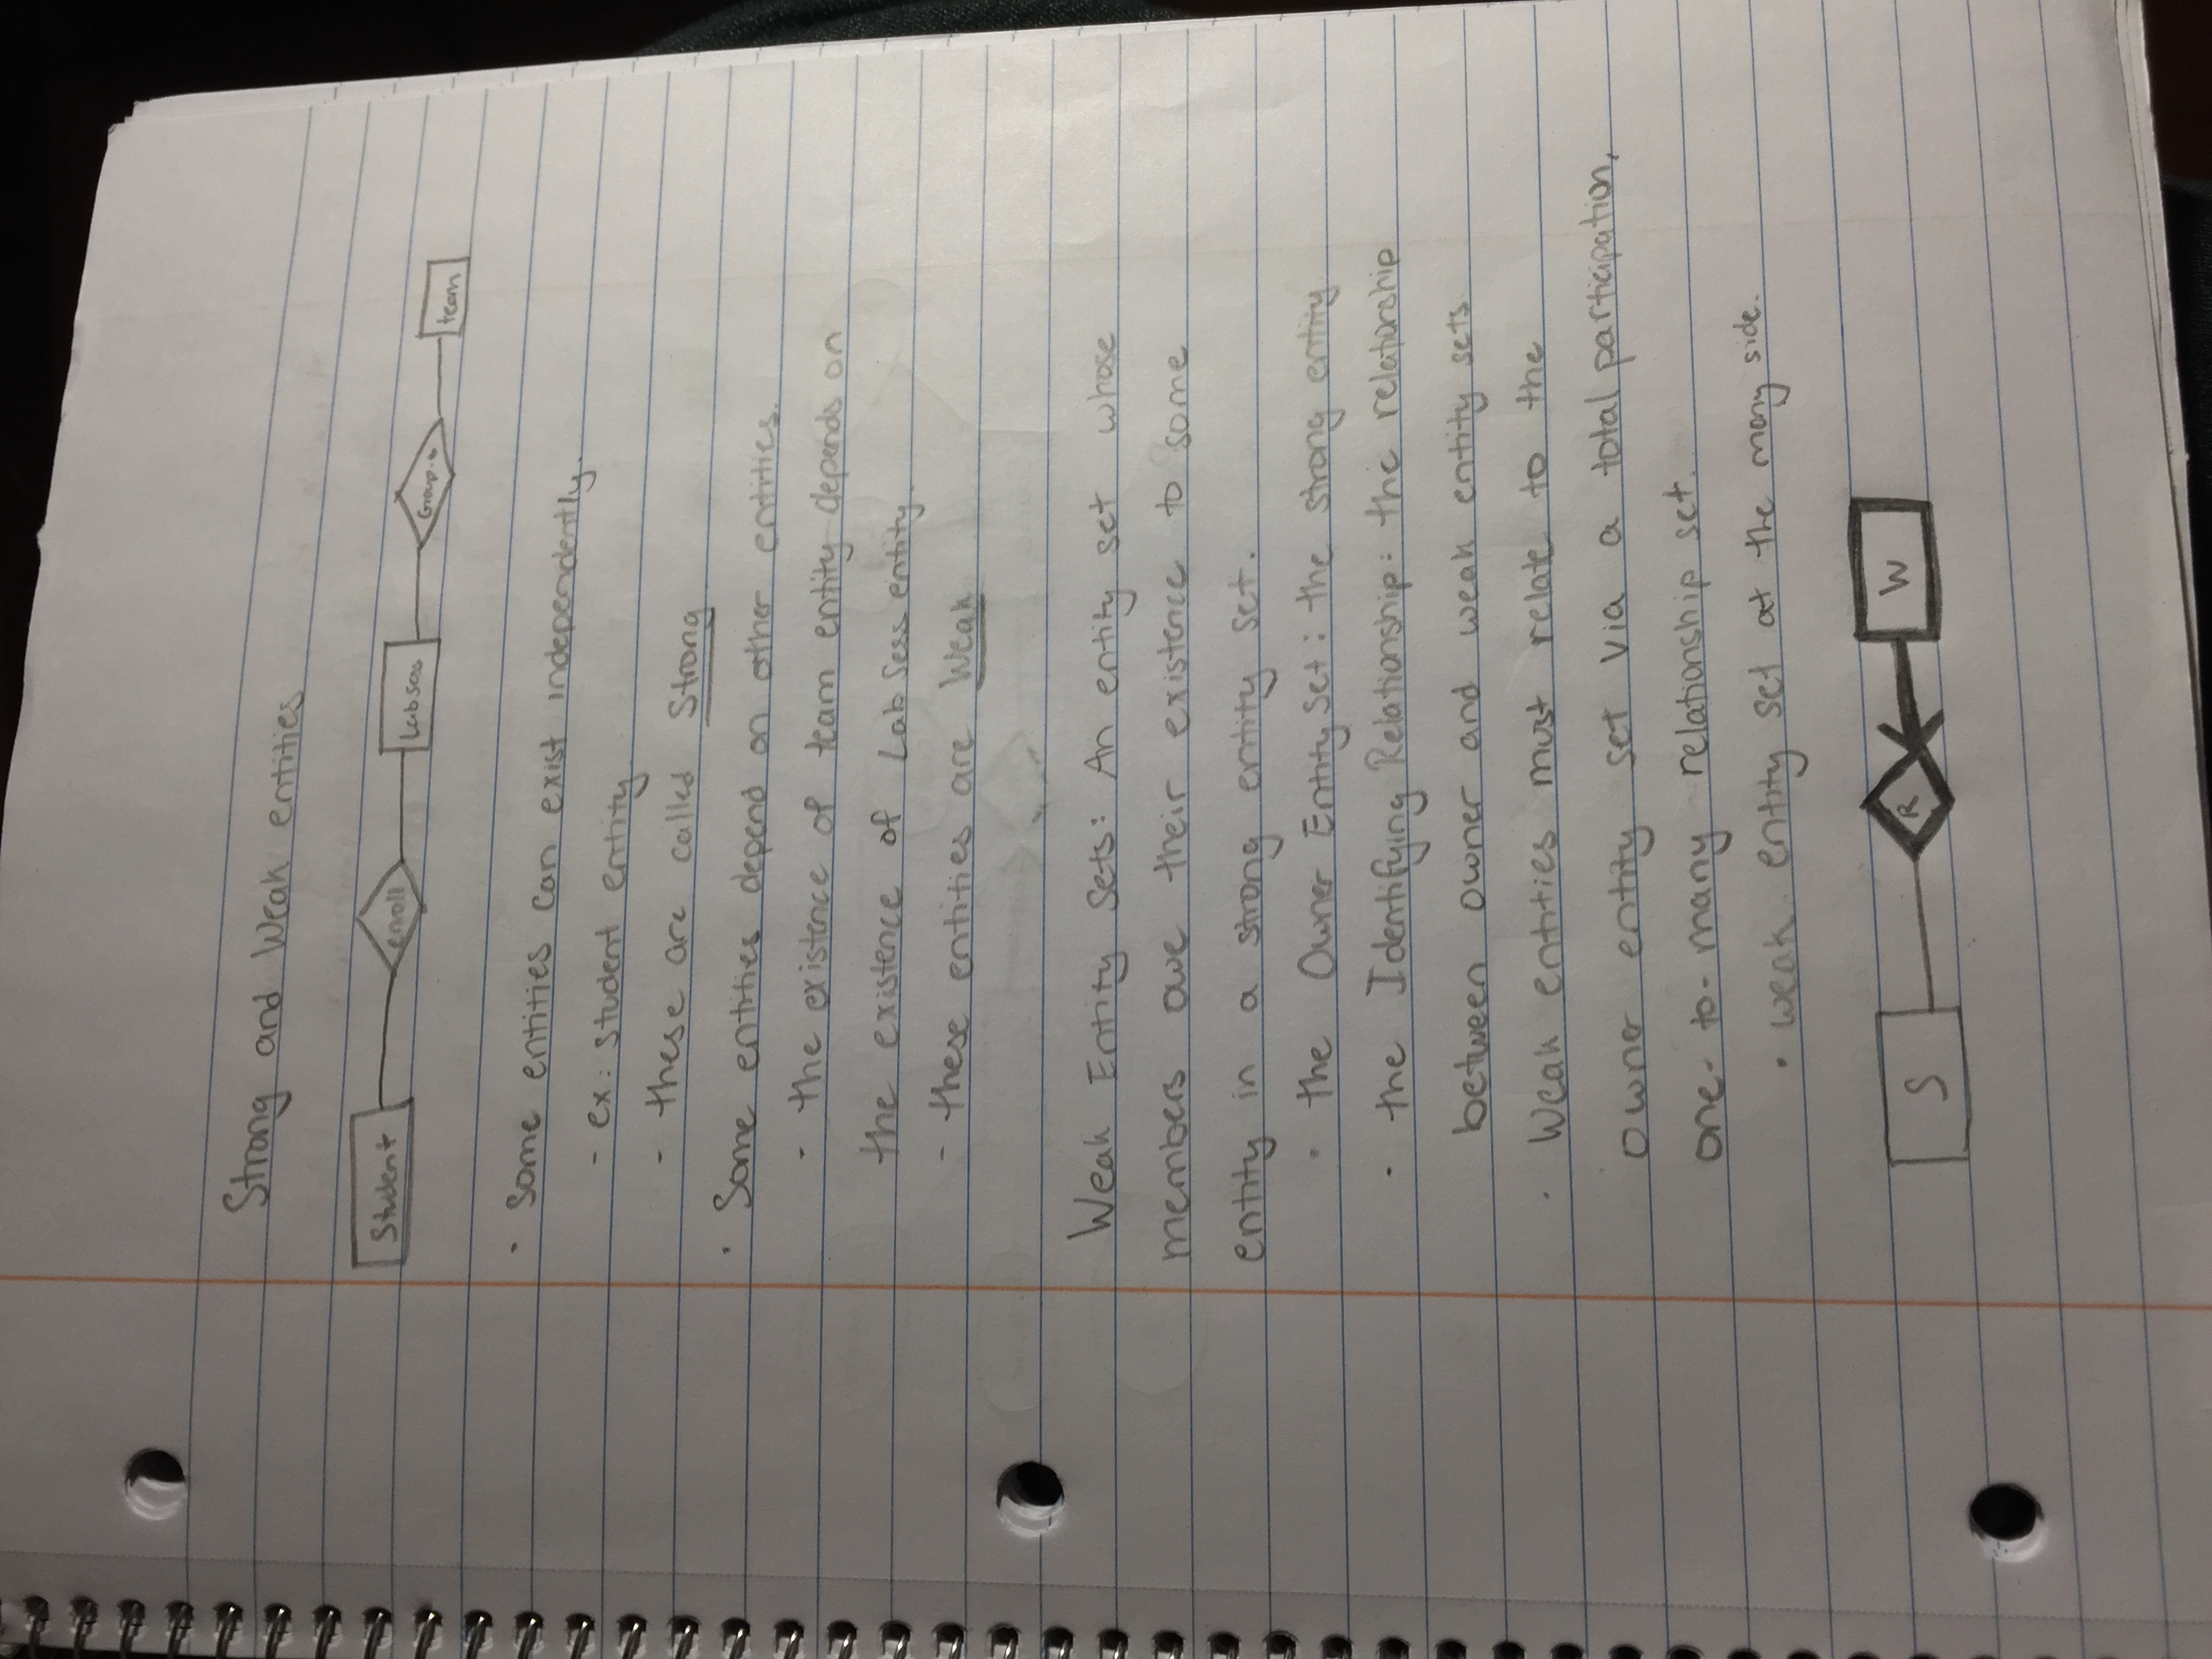 Strong and Weak entities
Student enroll Lab sess team
· Some entities can exist independently.
- ex: student entity
- these are called Strong
· Some entities depend on other entities.
- the existence of team entity depends on
the existence of Lab Sess entity.
- these entities are Weak
Weak Entity Sets: An entity set whose
members owe their existence to some
entity in a strong entity set.
· the Owner Entity Set: the strong entity
· the Identifying Relationship: the relationship
between owner and weak entity sets
· Weak entities must relate to the
owner entity set via a total participation,
one-to-many relationship set.
· weak entity set at the many side.
S R W